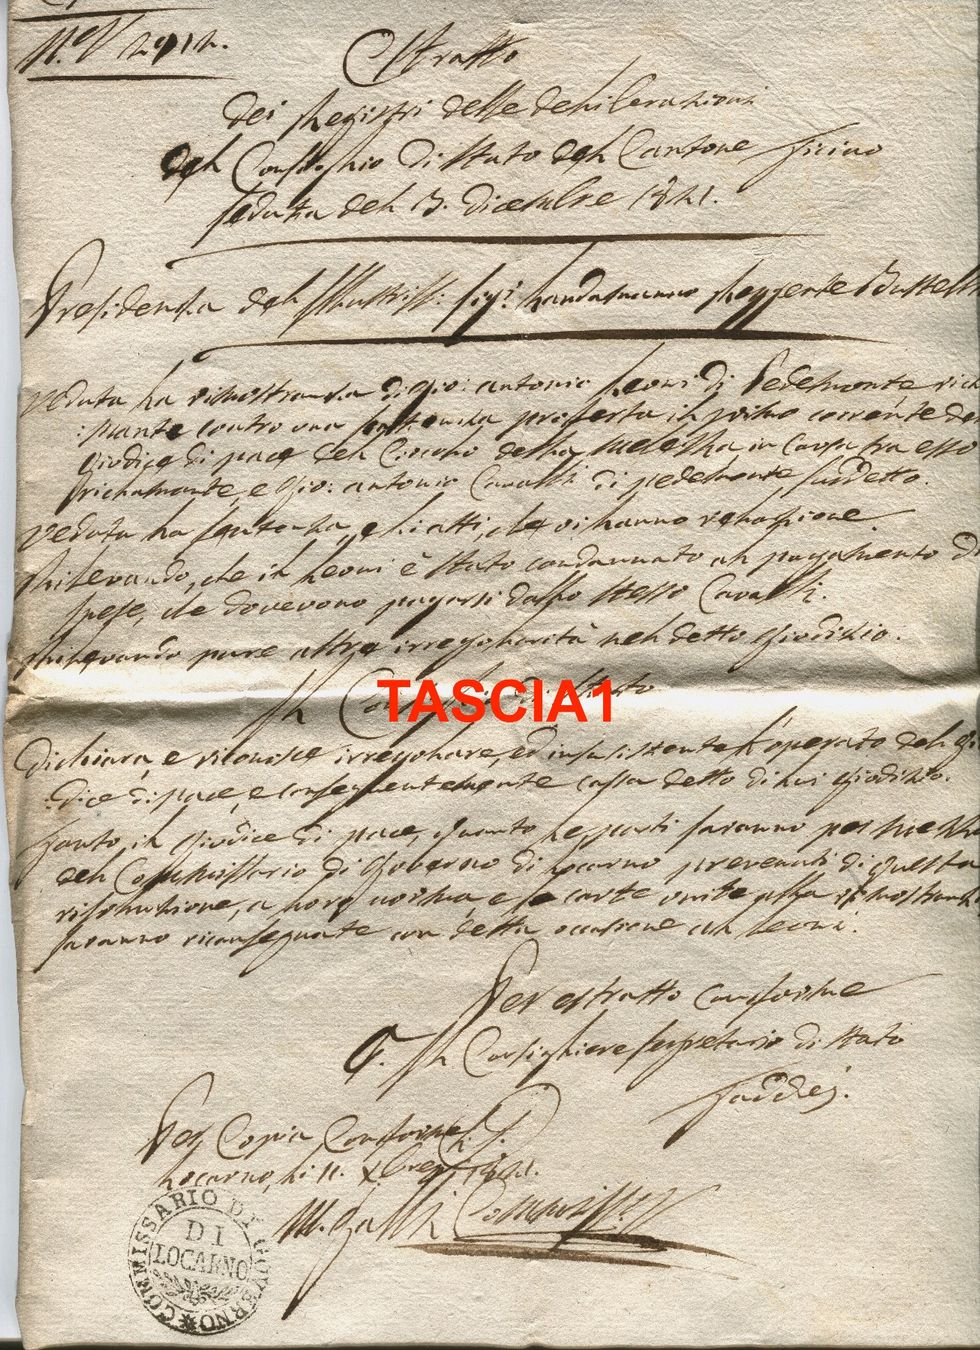 N.º 2912.
Estratto
dei Registri delle deliberazioni
del Consiglio di Stato del Cantone Ticino
Seduta del 3. Dicembre 1821.
Presidenza del Illustriss: Sigr Landamanno Reggente
Veduta la rimostranza di Gio: Antonio Leoni di Pedemonte
contro una sentenza proferta il primo corrente dal
Giudice di pace del Circolo della Melezza in Causa fra esso
richamante, e Gio: Antonio Cavalli di pedemonte suddetto.
Veduta la sentenza, e li atti, che vi hanno relazione.
Rilevando, che il Leoni è stato condannato al pagamento di
spese, che dovevono pagarsi dallo stesso Cavalli.
Rilevando pure altre irregolarità nel detto Giudizio.
Il Consiglio di Stato
TASCIA1
Dichiara, e riconosce irregolare, ed insussistente l'operato del Giu
dice di pace, e conseguentemente cassa detto di lui Giudizio.
Tanto il Giudice di pace, quanto le parti saranno per mezzo
del Commissario di Governo di Locarno prevenuti di questa
risoluzione, a loro norma, e le carte unite alla rimostranza
saranno riconsegnate con detta occasione al Leoni.
Per estratto conforme
Il Consigliere Segretario di Stato
Taddei.
Per Copia Conforme
Locarno, li 11. Xbre 1821.
M. Galli Commiss.
COMMISSARIO DI GOVERNO
DI
LOCARNO